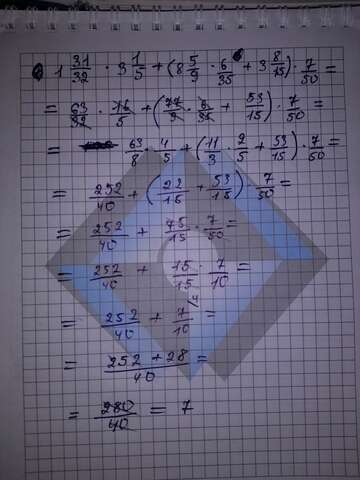 1 31/32 · 3 1/5 + (8 5/9 · 6/35 + 3 8/15) · 7/50 =
= 63/32 · 16/5 + (77/9 · 6/35 + 53/15) · 7/50 =
= 63/8 · 4/5 + (11/3 · 2/5 + 53/15) · 7/50 =
= 252/40 + (22/15 + 53/15) · 7/50 =
= 252/40 + 75/15 · 7/50 =
= 252/40 + 15/15 · 7/10 =
= 252/40 + 7/10 ⁄4 =
= 252 + 28/40 =
= 280/40 = 7